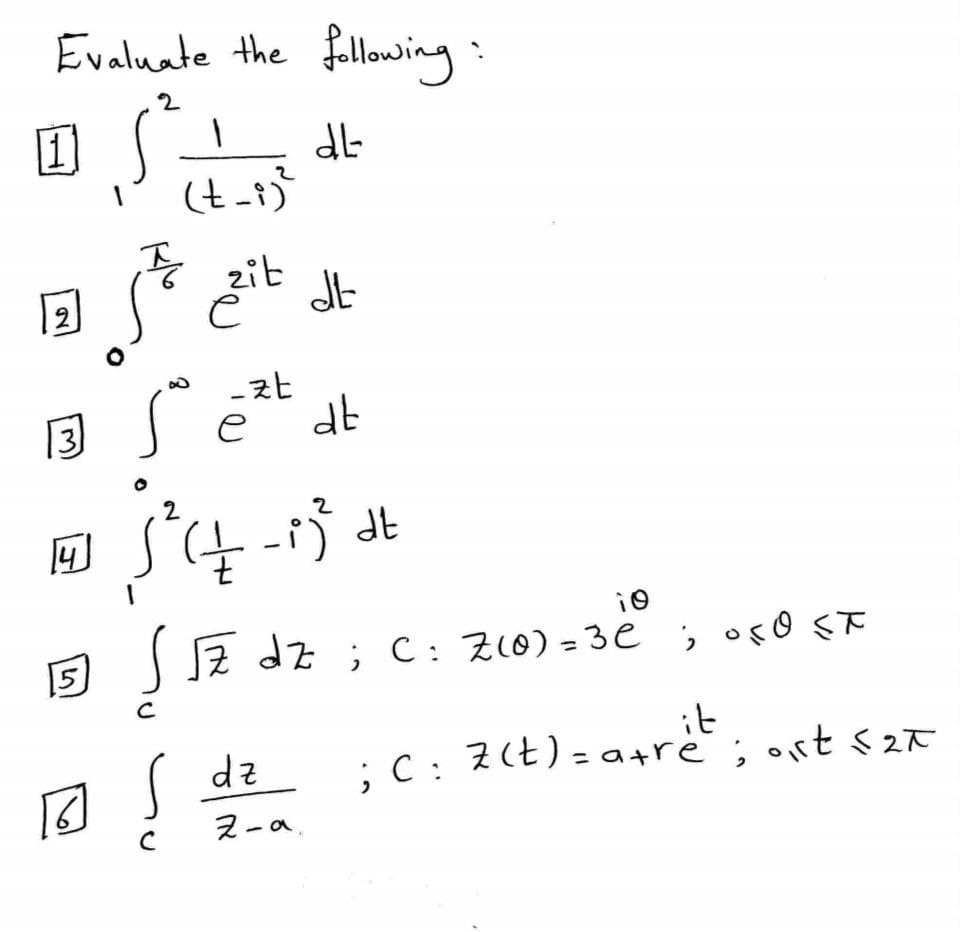 Evaluate the following :
[1] ∫₁² 1/(t-i)² dt
[2] ∫₀^(π/6) e^(2it) dt
[3] ∫₀^∞ e^(-zt) dt
[4] ∫₁² (1/t - i)² dt
[5] ∫_C √z dz ; C : z(θ) = 3e^(iθ) ; 0 ≤ θ ≤ π
[6] ∫_C dz/(z-a) ; C : z(t) = a+re^(it) ; 0 ≤ t ≤ 2π